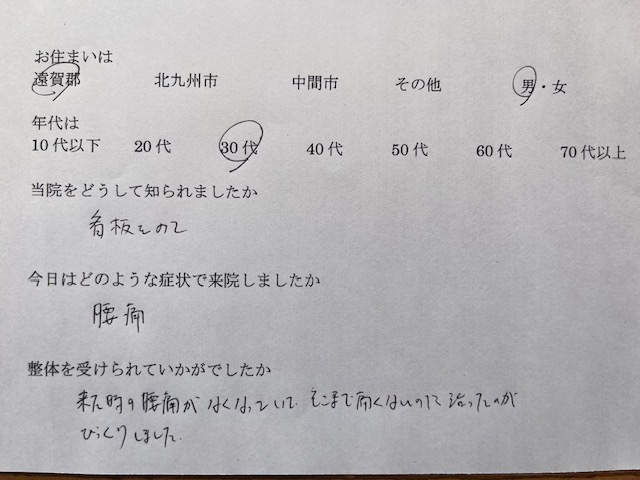 お住まいは
遠賀郡 北九州市 中間市 その他 男・女
年代は
10代以下 20代 30代 40代 50代 60代 70代以上
当院をどうして知られましたか
看板をみて
今日はどのような症状で来院しましたか
腰痛
整体を受けられていかがでしたか
来た時の腰痛がなくなっていて、そこまで痛くないのに治ったのが
びっくりしました。